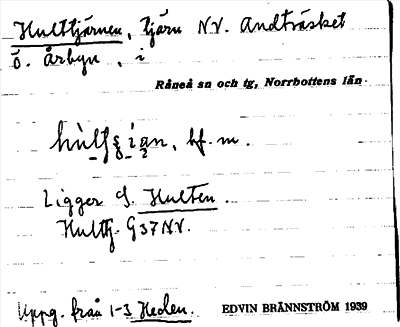 Hulttjärnen, tjärn NV. Andträsket
ö. Årbyn, i
Råneå sn och tg, Norrbottens län.
bf. m.
Ligger S. Hulten
Hulttj. G37NV.
Uppg. från 1-3 Heden. EDVIN BRÄNNSTRÖM 1939